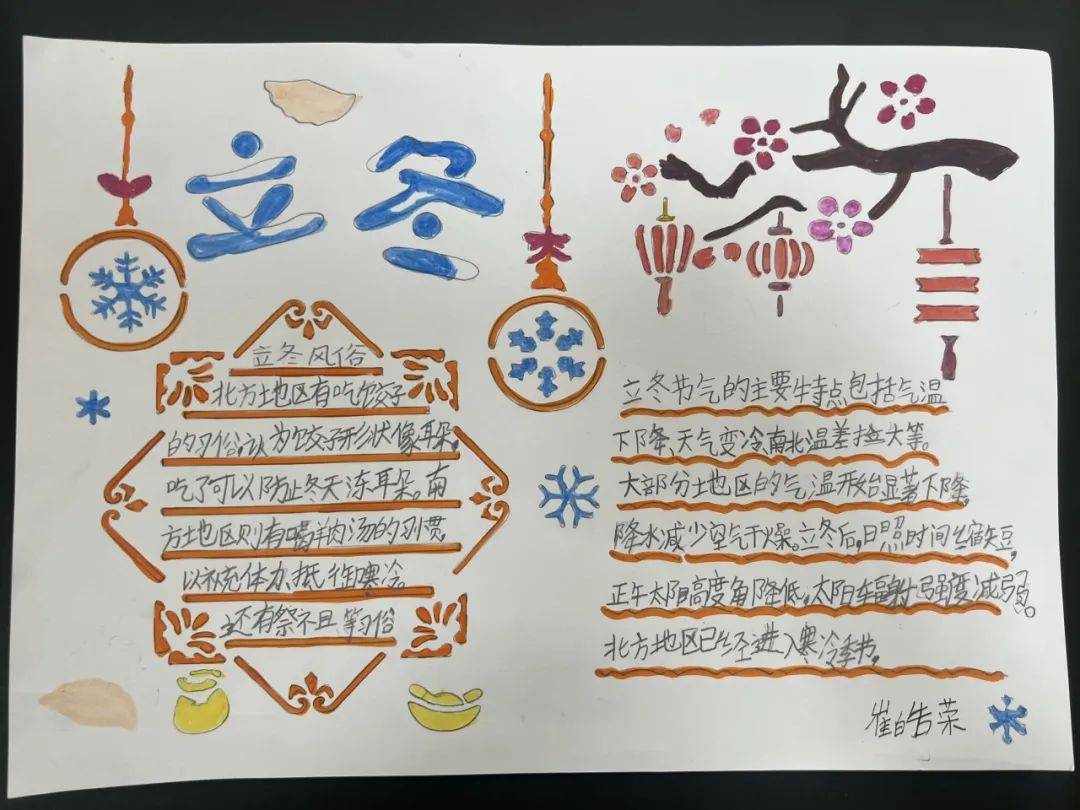 立冬
立冬风俗
北方地区有吃饺子
的习俗,认为饺子形状像耳朵,
吃了可以防止冬天冻耳朵。南
方地区则有喝羊肉汤的习惯,
以补充体力、抵御寒冷
还有祭祖等习俗
立冬节气的主要特点包括气温
下降、天气变冷、南北温差拉大等。
大部分地区的气温开始显著下降。
降水减少空气干燥。立冬后,日照时间缩短,
正午太阳高度角降低,太阳车辐射强度减弱。
北方地区已经进入寒冷季节。
崔皓荣